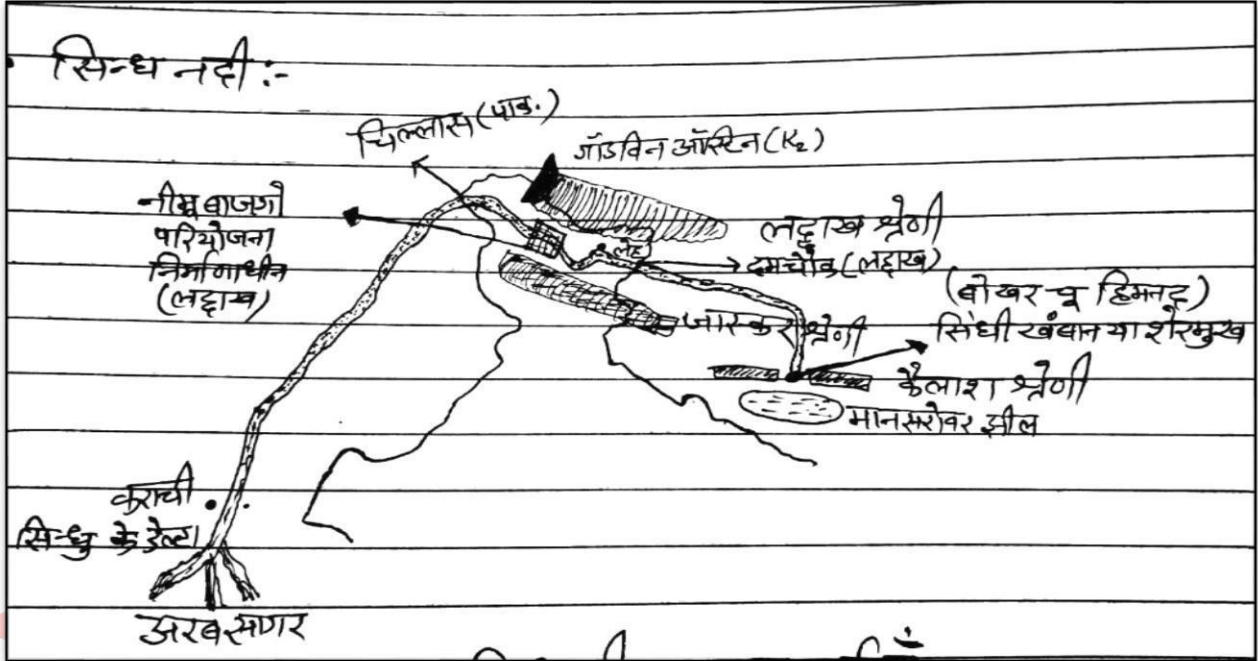 सिन्ध नदी :-
चिल्लास (पाक.)
गॉडविन ऑस्टिन (K₂)
नीमू बाजगो
परियोजना
निर्माणाधीन
(लद्दाख)
लद्दाख श्रेणी
लेह
दमचौक (लद्दाख)
(बोखर-चू हिमनद)
जास्कर श्रेणी
सिंघी खंबान या शेरमुख
कैलाश श्रेणी
मानसरोवर झील
कराची
सिन्धु के डेल्टा
अरब सागर